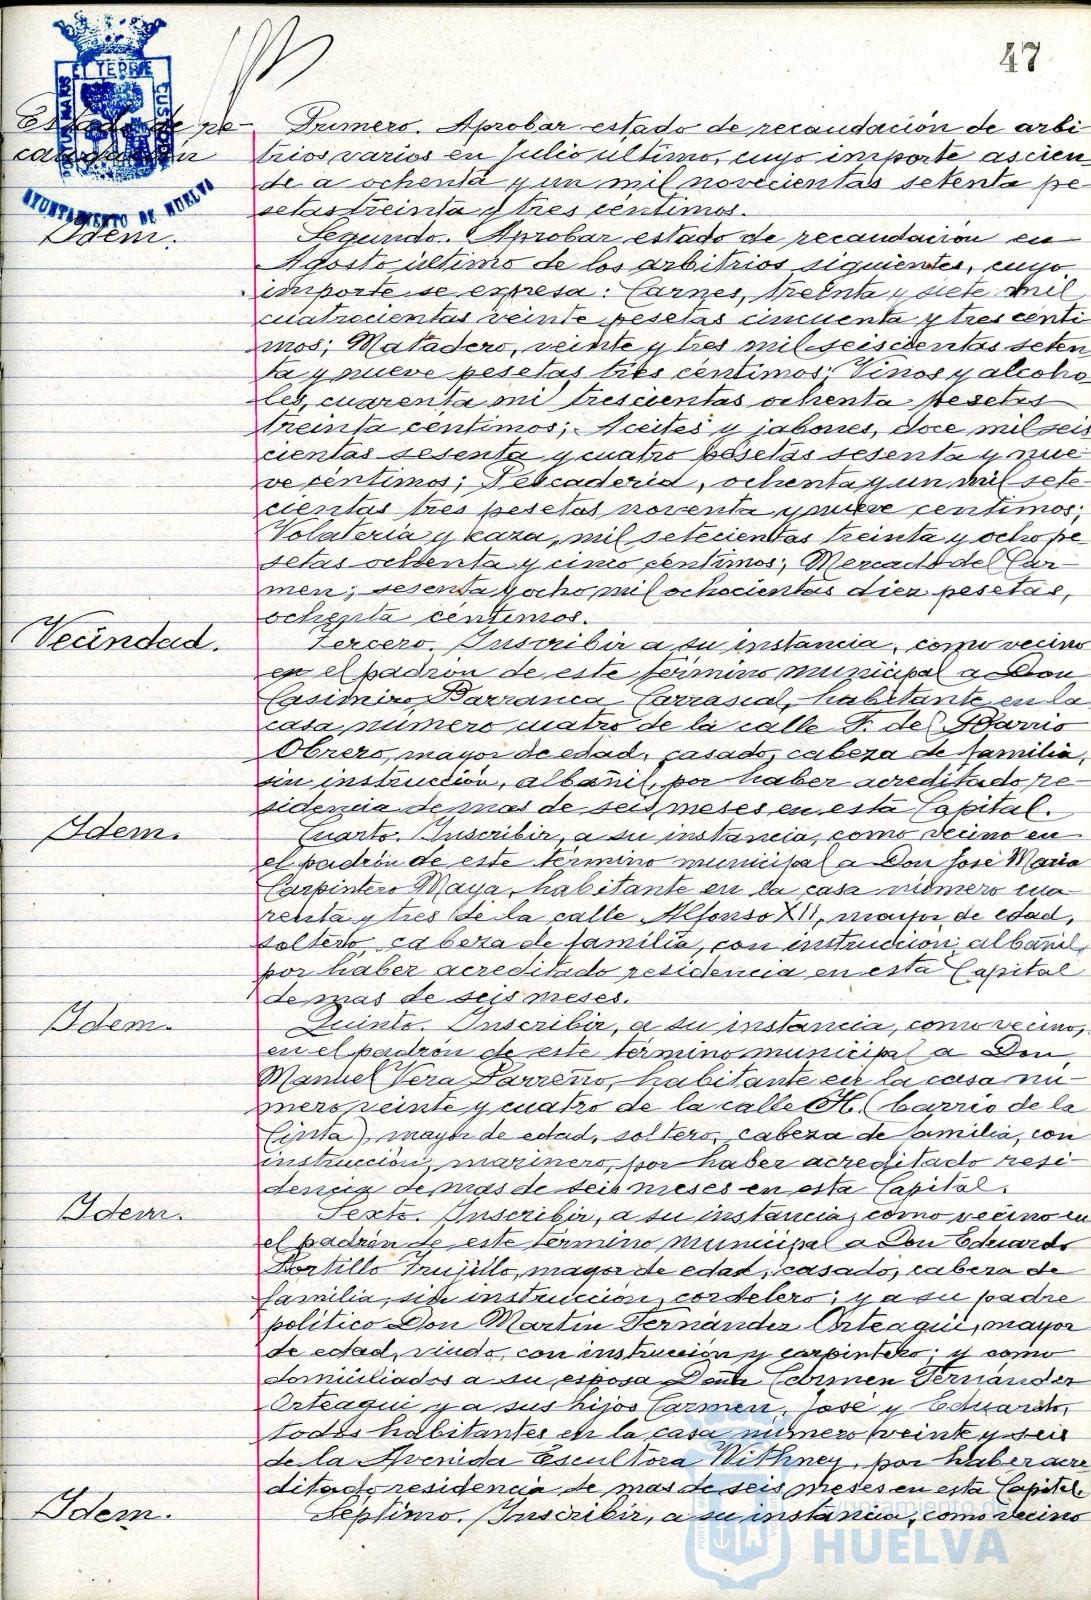 47
PORTUS MARIS ET TERRE CUSTODIA
AYUNTAMIENTO DE HUELVA
Estado de re-
caudación
Primero. Aprobar estado de recaudación de arbi
trios varios en Julio último, cuyo importe ascien
de a ochenta y un mil novecientas setenta pe-
setas treinta y tres céntimos.
Idem.
Segundo. Aprobar estado de recaudación en
Agosto último de los arbitrios siguientes, cuyo
importe se expresa: Carnes, treinta y siete mil
cuatrocientas veinte pesetas cincuenta y tres centi
mos; Matadero, veinte y tres mil seiscientas seten
ta y nueve pesetas tres céntimos; Vinos y alcoho-
les, cuarenta mi trescientas ochenta pesetas
treinta centimos; Aceites y jabones, doce mil seis
cientas sesenta y cuatro pesetas sesenta y nue-
ve céntimos; Pescaderia, ochenta y un mil sete-
cientas tres pesetas noventa y nueve centimos;
Volateria y kaza, mil setecientas treinta y ocho pe
setas ochenta y cinco céntimos; Mercado del Car-
men; sesenta y ocho mil ochocientas diez pesetas,
ochenta céntimos.
Vecindad.
Tercero. Inscribir a su instancia, como vecino
en el padrón de este término municipal a Don
Casimiro Barranca Carrascal, habitante en la
casa número cuatro de la calle F. del Barrio
Obrero, mayor de edad, casado, cabeza de familia,
sin instrucción, albañil, por haber acreditado re-
sidencia de mas de seis meses en esta Capital.
Idem.
Cuarto. Inscribir, a su instancia, como vecino en
el padrón de este término municipal a Don José María
Carpintero Maya, habitante en la casa número cua-
renta y tres de la calle Alfonso XII, mayor de edad,
soltero, cabeza de familia, con instrucción, albañil,
por haber acreditado residencia en esta Capital
de mas de seis meses.
Idem.
Quinto. Inscribir, a su instancia, como vecino,
en el padrón de este término municipal a Don
Manuel Vera Parreño, habitante en la casa nú-
mero veinte y cuatro de la calle H. (barrio de la
Cinta), mayor de edad, soltero, cabeza de familia, con
instrucción, marinero, por haber acreditado resi-
dencia de mas de seis meses en esta Capital.
Idem.
Sexto. Inscribir, a su instancia, como vecino en
el padrón de este termino municipal a Don Eduardo
Portillo Trujillo, mayor de edad, casado, cabeza de
familia, sin instrucción, cordelero; y a su padre
político Don Martín Fernández Orteagui, mayor
de edad, viudo, con instrucción y carpintero; y como
domiciliados a su esposa Doña Carmen Fernández
Orteagui y a sus hijos Carmen, José y Eduardo,
todos habitantes en la casa número veinte y seis
de la Avenida Escultora Withney, por haber acre
ditado residencia de mas de seis meses en esta Capital.
Idem.
Séptimo. Inscribir, a su instancia, como vecino
Ayuntamiento de
HUELVA